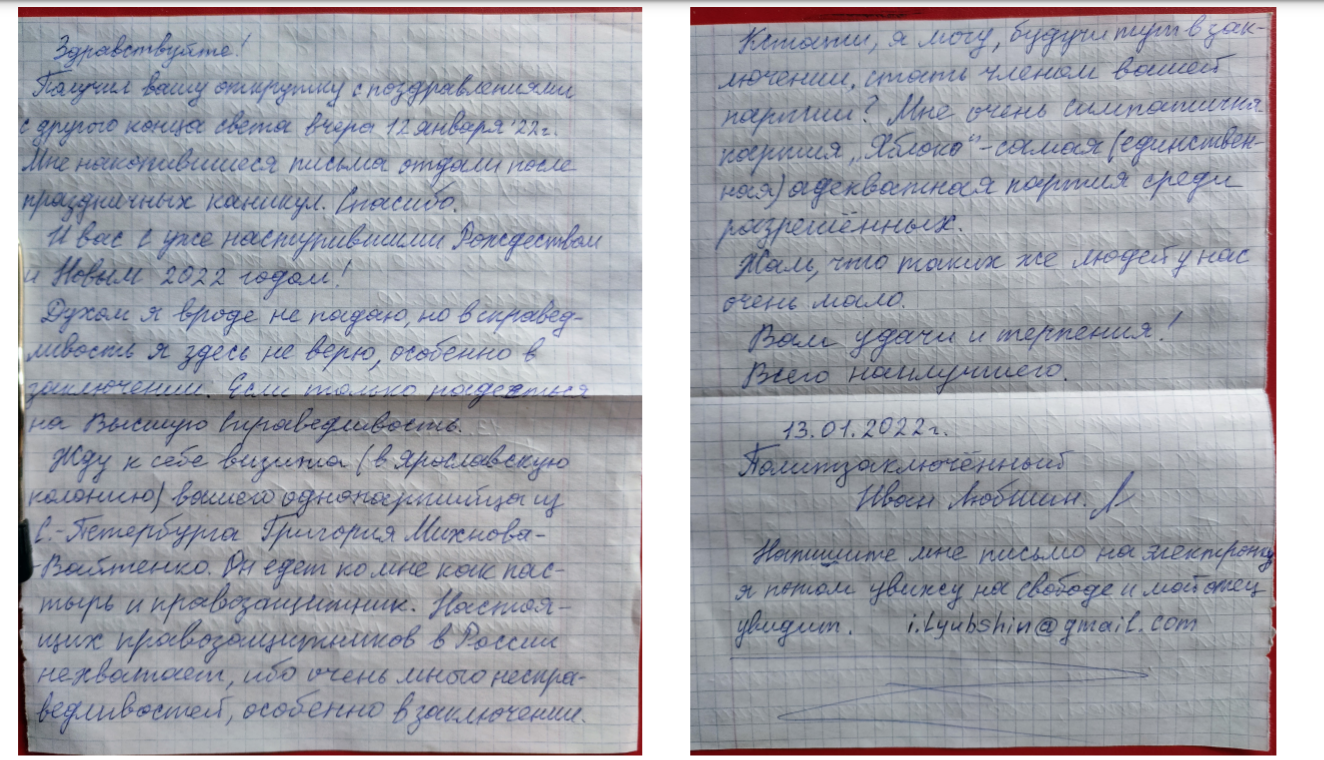 Здравствуйте!
Получил вашу открытку с поздравлениями
с другого конца света вчера 12 января '22г.
Мне накопившиеся письма отдали после
праздничных каникул. Спасибо.
И вас с уже наступившими Рождеством
и Новым 2022 годом!
Духом я вроде не падаю, но в справед-
ливость я здесь не верю, особенно в
заключении. Если только надеяться
на Высшую Справедливость.
Жду к себе визита (в Ярославскую
колонию) вашего однопартийца из
С.-Петербурга Григория Михнова-
-Вайтенко. Он едет ко мне как пас-
тырь и правозащитник. Настоя-
щих правозащитников в России
не хватает, ибо очень много неспра-
ведливостей, особенно в заключении.
Кстати, я могу, будучи тут в зак-
лючении, стать членом вашей
партии? Мне очень симпатична
партия „Яблоко" - самая (единствен-
ная) адекватная партия среди
разрешённых.
Жаль, что таких же людей у нас
очень мало.
Вам удачи и терпения!
Всего наилучшего.
13.01.2022г.
Политзаключённый
Иван Любшин.
Напишите мне письмо на электронку
я потом увижу на свободе и мой отец
увидит. i.lyubshin@gmail.com